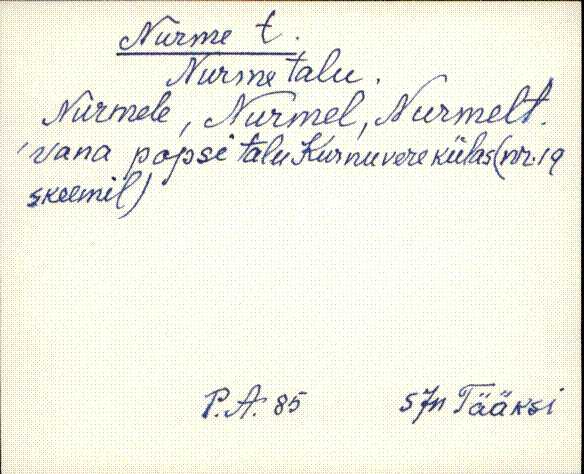 Nurme t.
Nurme talu.
Nurmele, Nurmel, Nurmelt.
vana popsi talu Kurnuvere külas (nr. 19
skeemil)
P.A. 85 Sjn Tääksi